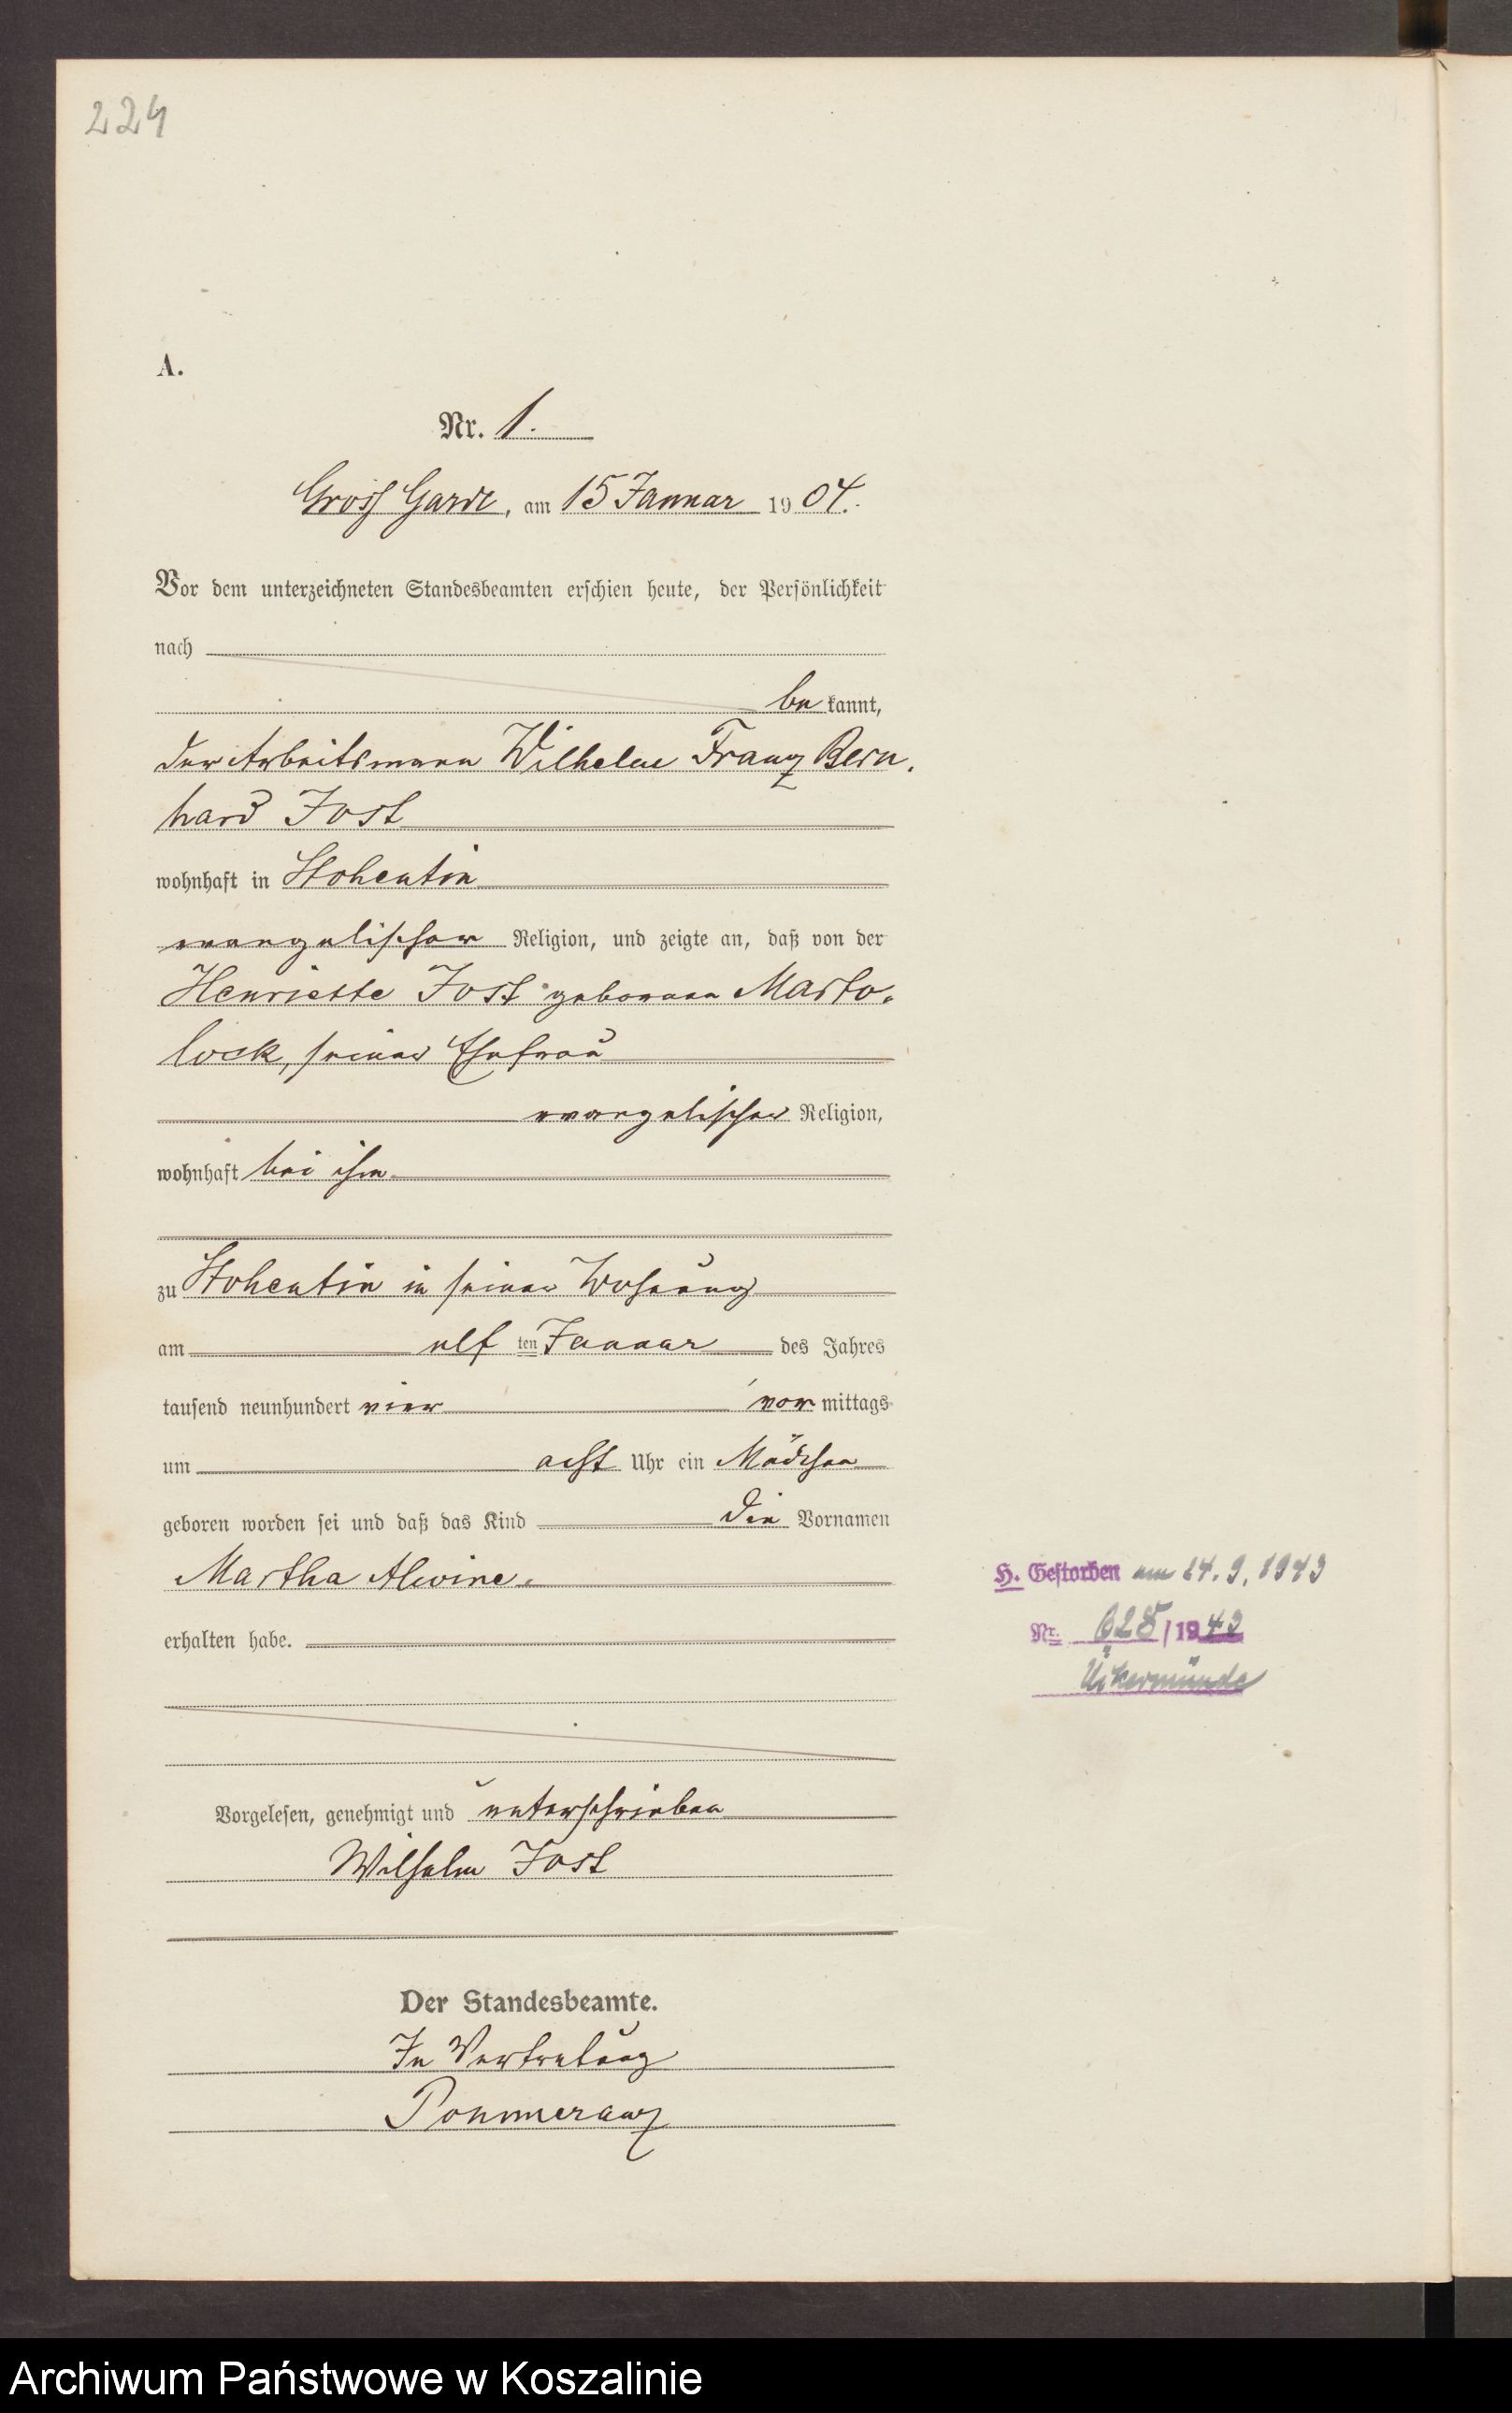 224
A.
Nr. 1.
Gross Garde, am 15 Januar 1904.
Vor dem unterzeichneten Standesbeamten erschien heute, der Persönlichkeit
nach
bekannt,
der Arbeitsmann Wilhelm Franz Bern-
hard Jost
wohnhaft in Stohentin
evangelischer Religion, und zeigte an, daß von der
Henriette Jost geborene Marto-
lock, seiner Ehefrau
evangelischer Religion,
wohnhaft bei ihm
zu Stohentin in seiner Wohnung
am elften Januar des Jahres
tausend neunhundert vier vormittags
um acht Uhr ein Mädchen
geboren worden sei und daß das Kind die Vornamen
Martha Alwine.
H. Gestorben am 24.9.1943
erhalten habe.
Nr. 628/1943
Ückermünde
Vorgelesen, genehmigt und unterschrieben
Wilhelm Jost
Der Standesbeamte.
In Vertretung
Pommeranz
Archiwum Państwowe w Koszalinie